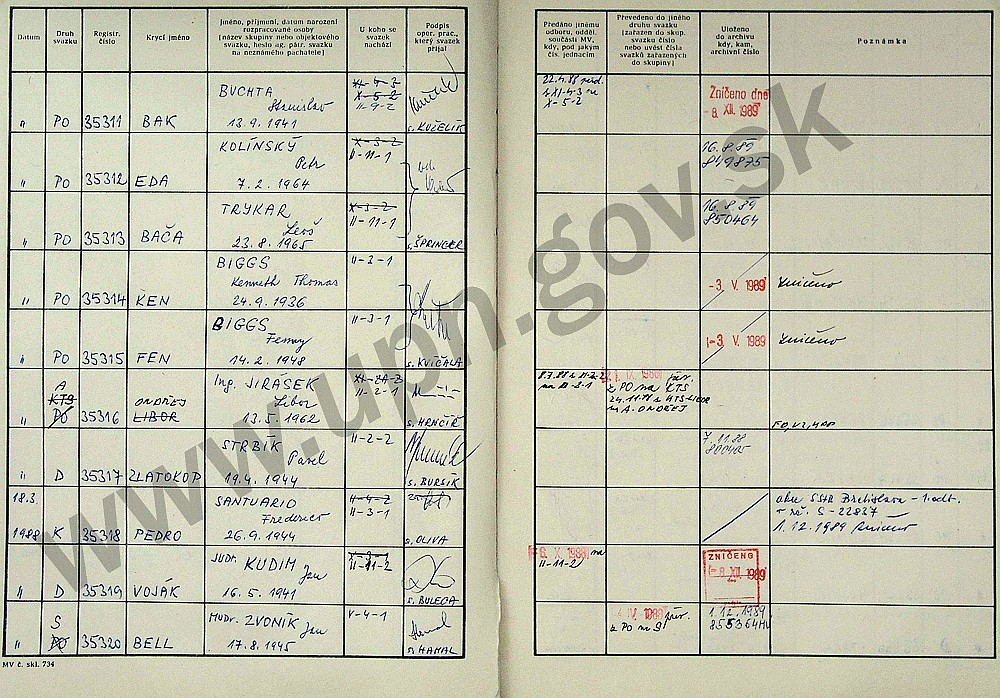 Datum
Druh svazku
Registr. číslo
Krycí jméno
Jméno, příjmení, datum narození
rozpracované osoby
(název skupiny nebo objektového
svazku, heslo ag. pátr. svazku
na neznámého pachatele)
U koho se
svazek
nachází
Podpis
oper. prac.,
který svazek
přijal
Předáno jinému
odboru, odděl.
součásti MV,
kdy, pod jakým
čís. jednacím
Převedeno do jiného
druhu svazku
(zařazen do skup.
svazku číslo
nebo uvést čísla
svazků zařazených
do skupiny)
Uloženo
do archivu
kdy, kam,
archivní číslo
Poznámka
" PO 35311 BAK
BUCHTA
Stanislav
13.9.1941
X-5-2
II-9-2
s. KUŽELÍK
22.4.88
X-5-2
Zničeno dne
-8. XII. 1989
" PO 35312 EDA
KOLÍNSKÝ
Petr
7.2.1964
X-3-2
II-11-1
16.8.89
849875
" PO 35313 BAČA
TRYKAR
Leoš
23.8.1965
X-3-2
II-11-1
s. ŠPRINGER
16.8.89
850464
" PO 35314 KEN
BIGGS
Kenneth Thomas
24.9.1936
II-3-1
-3. V. 1989
zničeno
" PO 35315 FEN
BIGGS
Fenny
14.2.1948
II-3-1
s. KVÍČALA
-3. V. 1989
zničeno
A
KTS
" PO 35316
ONDŘEJ
LIBOR
Ing. JIRÁSEK
Libor
13.5.1962
II-2-1
s. HRNČÍŘ
z PO na KTS
na A. ONDŘEJ
" D 35317 ZLATOKOP
STRBÍK
Pavel
19.4.1944
II-2-2
s. BURSÍK
7.11.88
18.3.
1988 K 35318 PEDRO
SANTUARIO
Frederico
26.9.1944
II-4-2
II-3-1
s. OLIVA
SStB Bratislava - 1. odt.
S-22837
1.12.1989
" D 35319 VOJÁK
JUDr. KUDIM Jan
16.5.1941
X-3-1
II-11-2
s. BULEGA
6. X. 1988 na
II-11-2
ZNIČENO
-8. XII. 1989
S
" PO 35320 BELL
MUDr. ZVONÍK Jan
17.8.1945
V-4-1
s. HAMAL
z PO na S
1.12.1989
855364 MV
MV č. skl. 734
www.upn.gov.sk